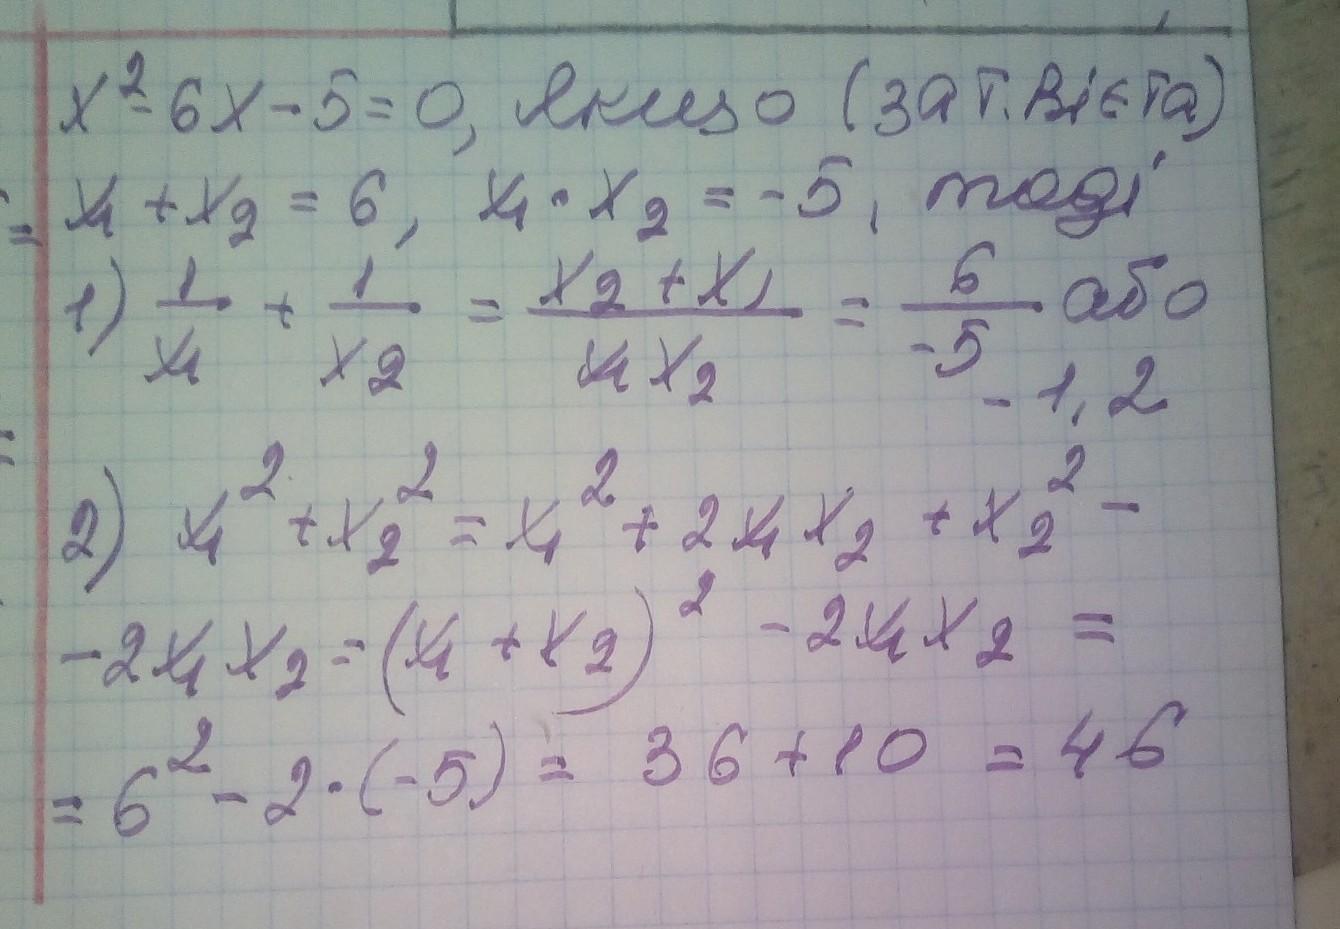 x² - 6x - 5 = 0, якщо (за т. Вієта)
x₁ + x₂ = 6, x₁ · x₂ = -5, тоді
1) 1/x₁ + 1/x₂ = (x₂ + x₁)/(x₁x₂) = 6/-5 або
-1,2
2) x₁² + x₂² = x₁² + 2x₁x₂ + x₂² -
- 2x₁x₂ = (x₁ + x₂)² - 2x₁x₂ =
= 6² - 2 · (-5) = 36 + 10 = 46